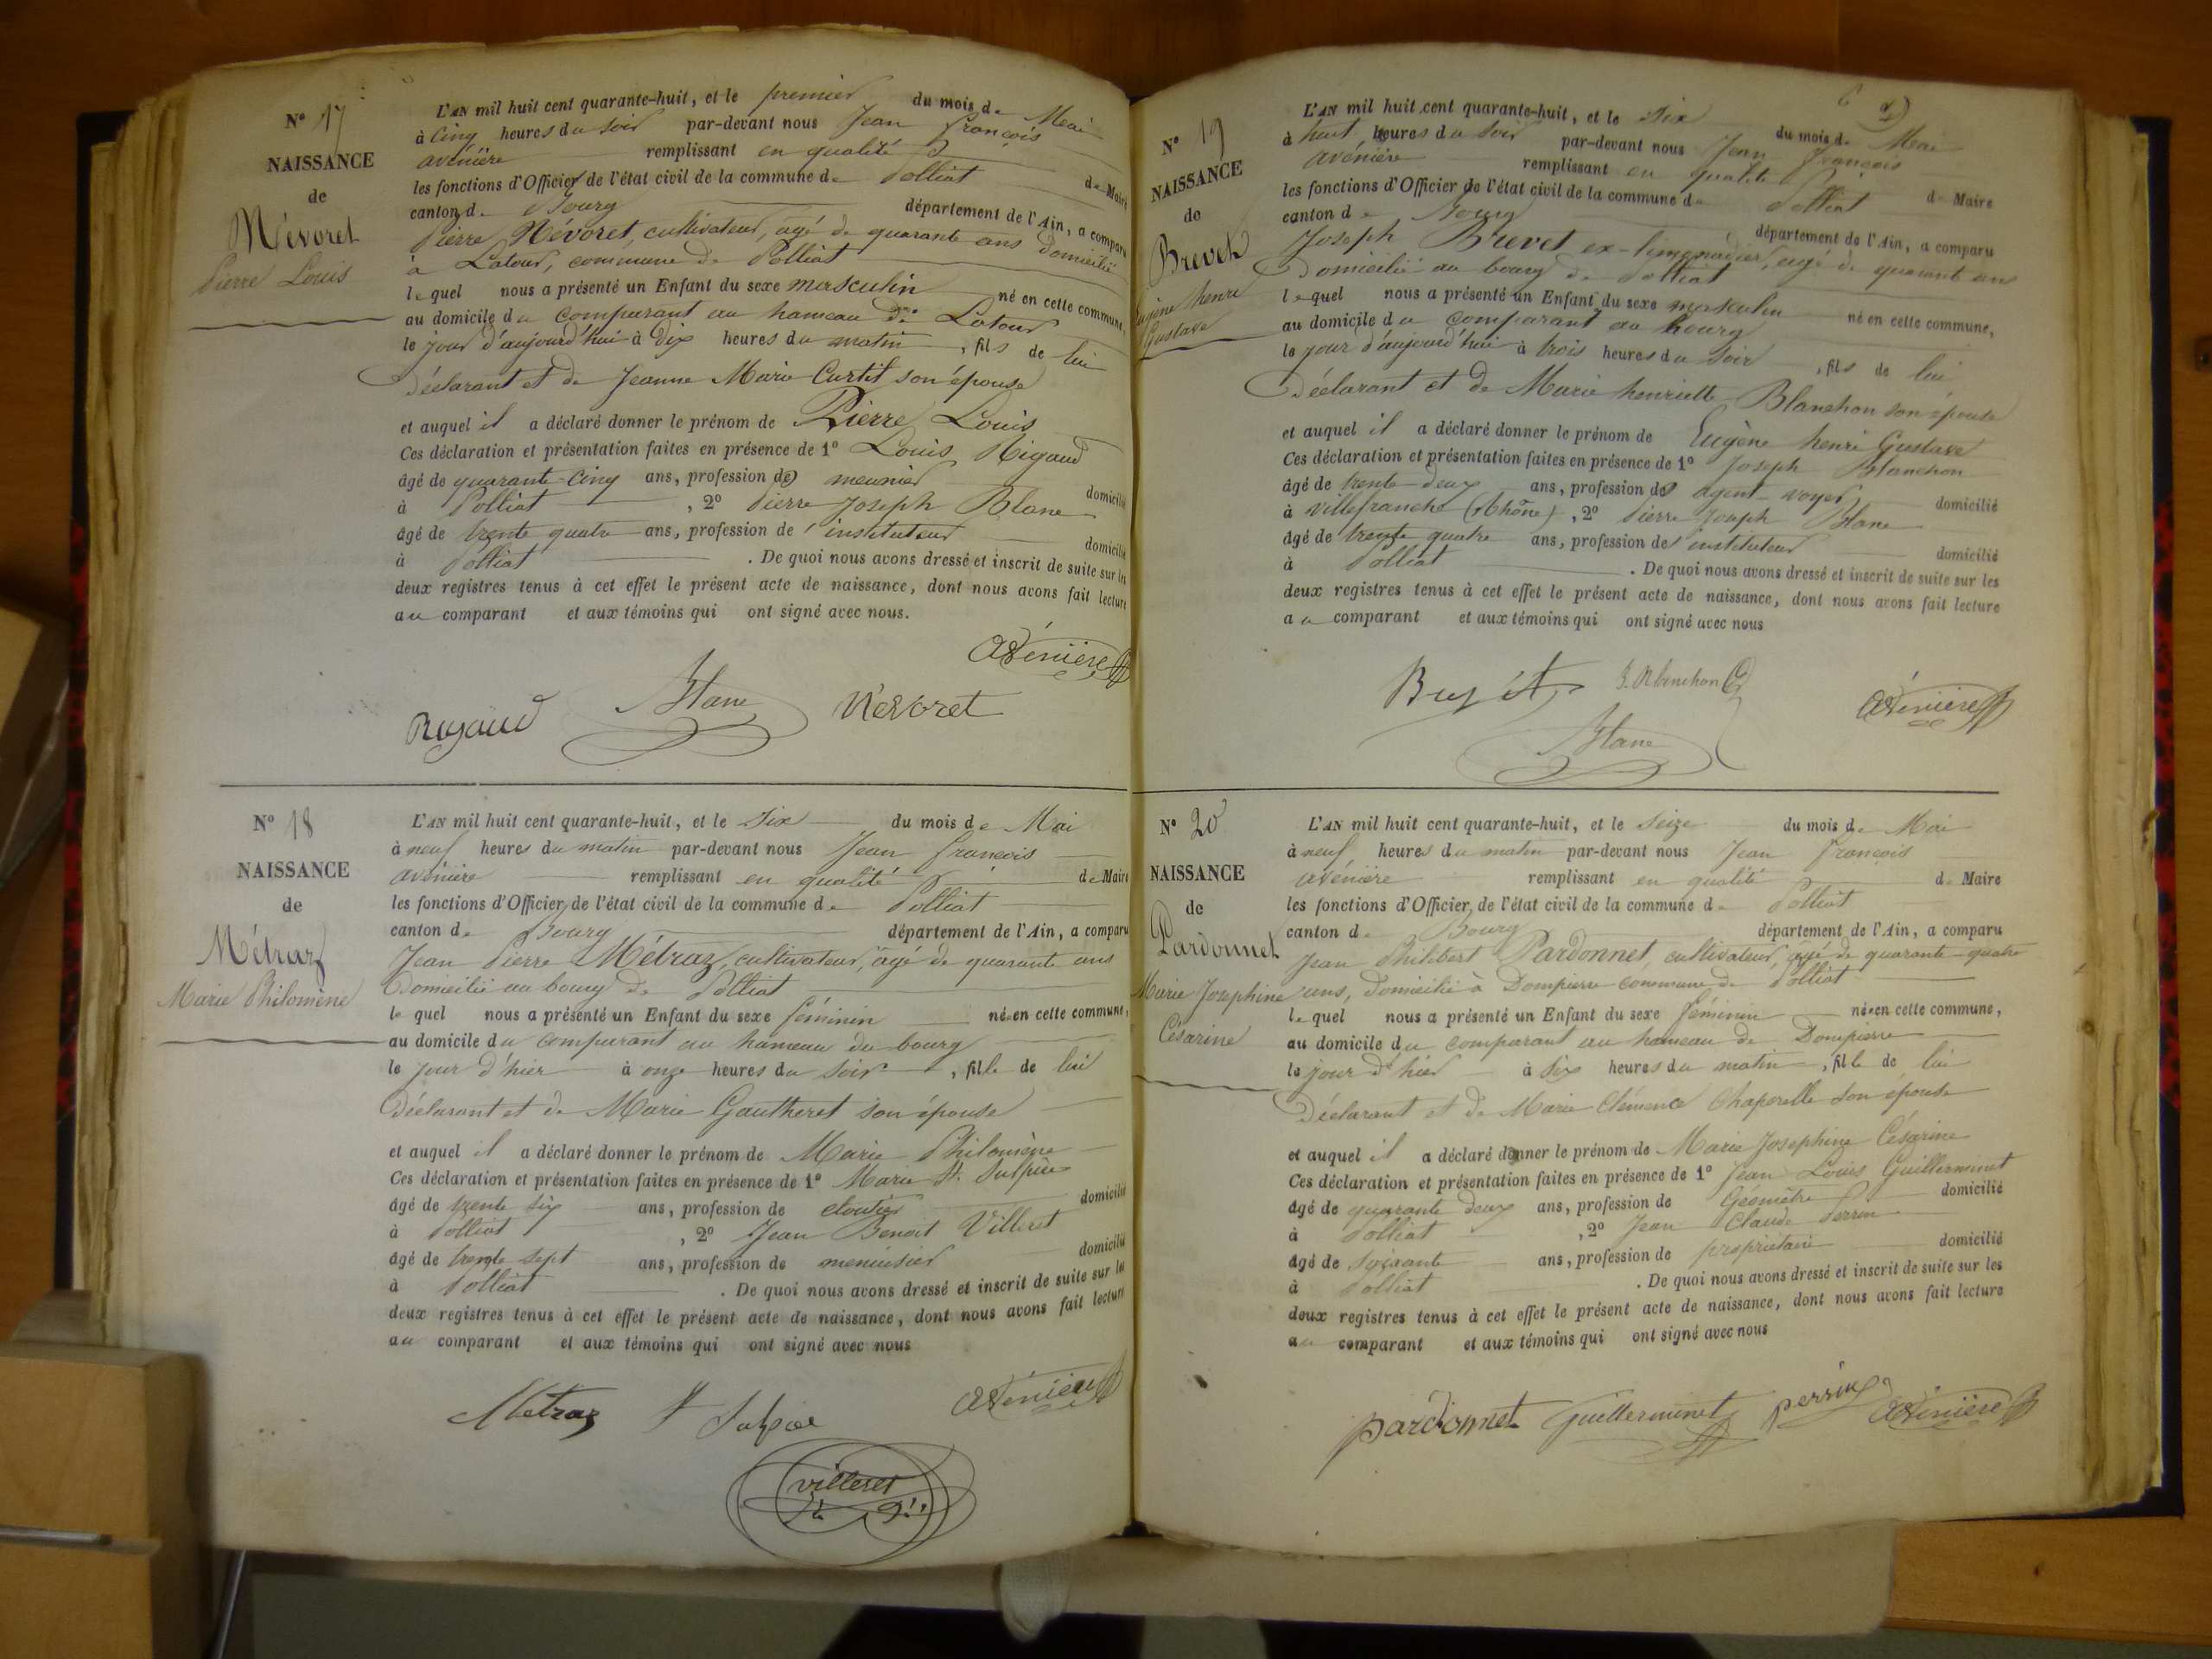 N° 17
NAISSANCE
de
Névoret
Pierre Louis
L'AN mil huit cent quarante-huit, et le premier du mois de Mai
à cinq heures du soir par-devant nous Jean françois
avénière remplissant en qualité de Maire
les fonctions d'Officier de l'état civil de la commune de Polliat
canton de Bourg département de l'Ain, a comparu
Pierre Névoret, cultivateur, agé de quarante ans domicilié
à Latour, commune de Polliat
lequel nous a présenté un Enfant du sexe masculin né en cette commune,
au domicile du comparant au hameau de Latour
le jour d'aujourd'hui à dix heures du matin, fils de lui
Déclarant et de Jeanne Marie Curtil son épouse
et auquel il a déclaré donner le prénom de Pierre Louis
Ces déclaration et présentation faites en présence de 1° Louis Rigaud
âgé de quarante-cinq ans, profession de meunier domicilié
à Polliat, 2° Pierre Joseph Blanc
âgé de trente quatre ans, profession de instituteur domicilié
à Polliat. De quoi nous avons dressé et inscrit de suite sur les
deux registres tenus à cet effet le présent acte de naissance, dont nous avons fait lecture
au comparant et aux témoins qui ont signé avec nous.
avénière
Rigaud Blanc Névoret
N° 18
NAISSANCE
de
Métraz
Marie Philomène
L'AN mil huit cent quarante-huit, et le six du mois de Mai
à neuf heures du matin par-devant nous Jean françois
avénière remplissant en qualité de Maire
les fonctions d'Officier de l'état civil de la commune de Polliat
canton de Bourg département de l'Ain, a comparu
Jean Pierre Métraz, cultivateur, agé de quarante ans
Domicilié au bourg de Polliat
lequel nous a présenté un Enfant du sexe féminin née en cette commune,
au domicile du comparant au hameau du bourg
le jour d'hier à onze heures du soir, fille de lui
Déclarant et de Marie Gautheret son épouse
et auquel il a déclaré donner le prénom de Marie Philomène
Ces déclaration et présentation faites en présence de 1° Marie St. Sulpice
âgé de trente six ans, profession de cloutier domicilié
à Polliat, 2° Jean Benoit Villeret
âgé de trente sept ans, profession de menuisier domicilié
à Polliat. De quoi nous avons dressé et inscrit de suite sur les
deux registres tenus à cet effet le présent acte de naissance, dont nous avons fait lecture
au comparant et aux témoins qui ont signé avec nous
Métraz St Sulpice avénière
villeret
N° 19
NAISSANCE
de
Brevet
Eugène henri
Gustave
L'AN mil huit cent quarante-huit, et le six du mois de Mai
à huit heures du soir par-devant nous Jean françois
avénière remplissant en qualité de Maire
les fonctions d'Officier de l'état civil de la commune de Polliat
canton de Bourg département de l'Ain, a comparu
Joseph Brevet ex-limonadier, agé de quarante ans
Domicilié au bourg de Polliat
lequel nous a présenté un Enfant du sexe masculin né en cette commune,
au domicile du comparant au bourg
le jour d'aujourd'hui à trois heures du soir, fils de lui
Déclarant et de Marie henriette Blanchon son épouse
et auquel il a déclaré donner le prénom de Eugène henri Gustave
Ces déclaration et présentation faites en présence de 1° Joseph Blanchon
âgé de trente-deux ans, profession de agent-voyer domicilié
à Villefranche (Rhône), 2° Pierre Joseph Blanc
âgé de trente quatre ans, profession de instituteur domicilié
à Polliat. De quoi nous avons dressé et inscrit de suite sur les
deux registres tenus à cet effet le présent acte de naissance, dont nous avons fait lecture
au comparant et aux témoins qui ont signé avec nous
J. Blanchon avénière
Blanc
N° 20
NAISSANCE
de
Pardonnet
Marie Josephine
Césarine
L'AN mil huit cent quarante-huit, et le seize du mois de Mai
à neuf heures du matin par-devant nous Jean françois
avénière remplissant en qualité de Maire
les fonctions d'Officier de l'état civil de la commune de Polliat
canton de Bourg département de l'Ain, a comparu
Jean Philibert Pardonnet, cultivateur, agé de quarante-quatre
ans, domicilié à Dompierre commune de Polliat
lequel nous a présenté un Enfant du sexe féminin née en cette commune,
au domicile du comparant au hameau de Dompierre
le jour d'hier à six heures du matin, fille de lui
Déclarant et de Marie Clémence Chaperelle son épouse
et auquel il a déclaré donner le prénom de Marie Josephine Césarine
Ces déclaration et présentation faites en présence de 1° Jean Louis Guillerminet
âgé de quarante deux ans, profession de Géomètre domicilié
à Polliat, 2° Jean Claude Perrin
âgé de soixante ans, profession de propriétaire domicilié
à Polliat. De quoi nous avons dressé et inscrit de suite sur les
deux registres tenus à cet effet le présent acte de naissance, dont nous avons fait lecture
au comparant et aux témoins qui ont signé avec nous
pardonnet Guillerminet perrin avénière